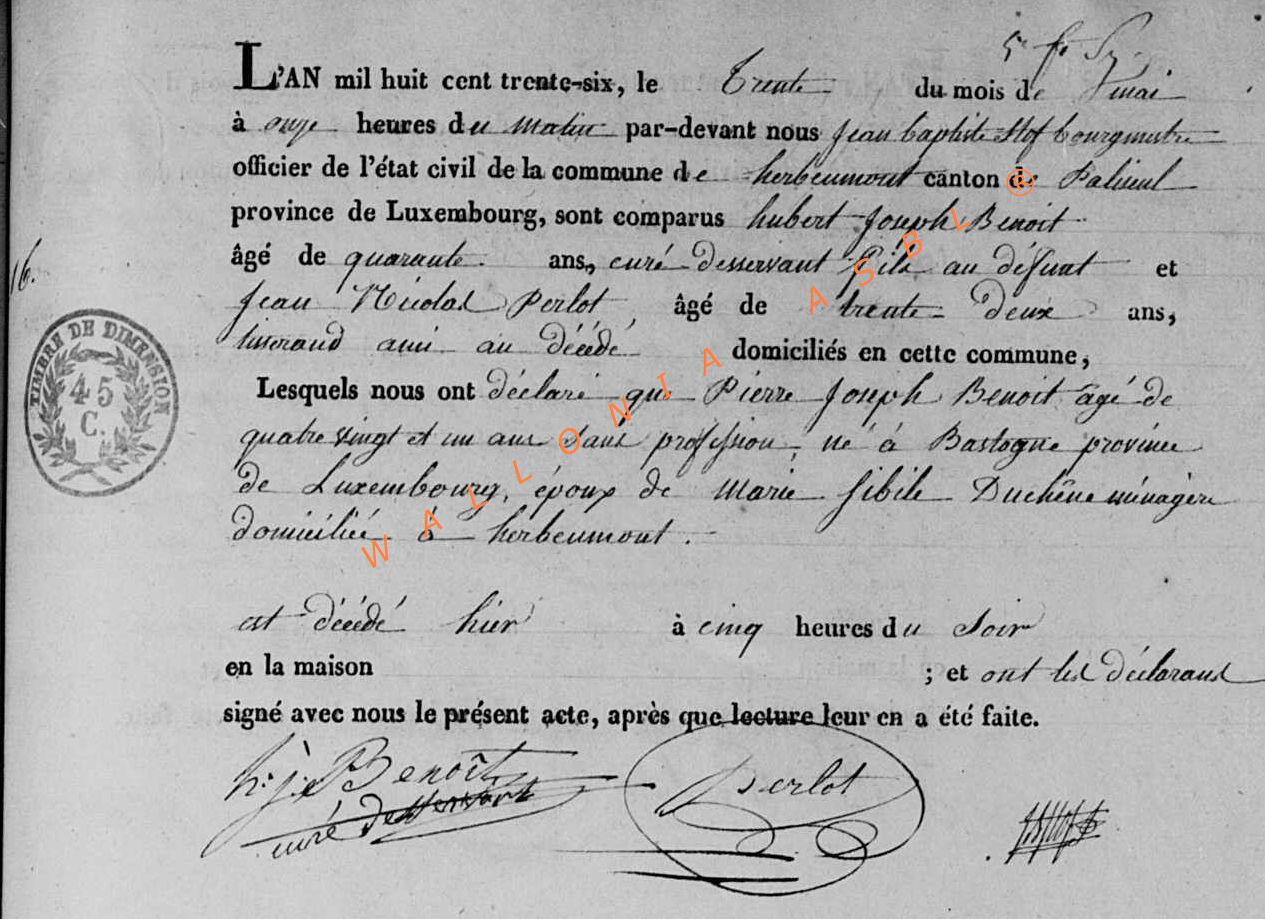 L'AN mil huit cent trente-six, le trente du mois de mai
à onze heures du matin par-devant nous jean baptiste Hof bourgmestre
officier de l'état civil de la commune de herbeumont canton de Paliseul
province de Luxembourg, sont comparus hubert Joseph Benoit
âgé de quarante ans, curé desservant fils au défunt et
16.
Jean Nicolas Perlot âgé de trente deux ans,
tisserand ami au décédé domiciliés en cette commune,
Lesquels nous ont déclaré que Pierre Joseph Benoit âgé de
quatre vingt et un ans sans profession, né à Bastogne province
de Luxembourg, époux de Marie Sibile Duchêne ménagère
domiciliée à herbeumont.
est décédé hier à cinq heures du soir
en la maison ; et ont les déclarans
signé avec nous le présent acte, après que lecture leur en a été faite.
h. j. Benoît
curé desservant
Perlot
TIMBRE DE DIMENSION
45
C.
WALLONIA ASBL ®